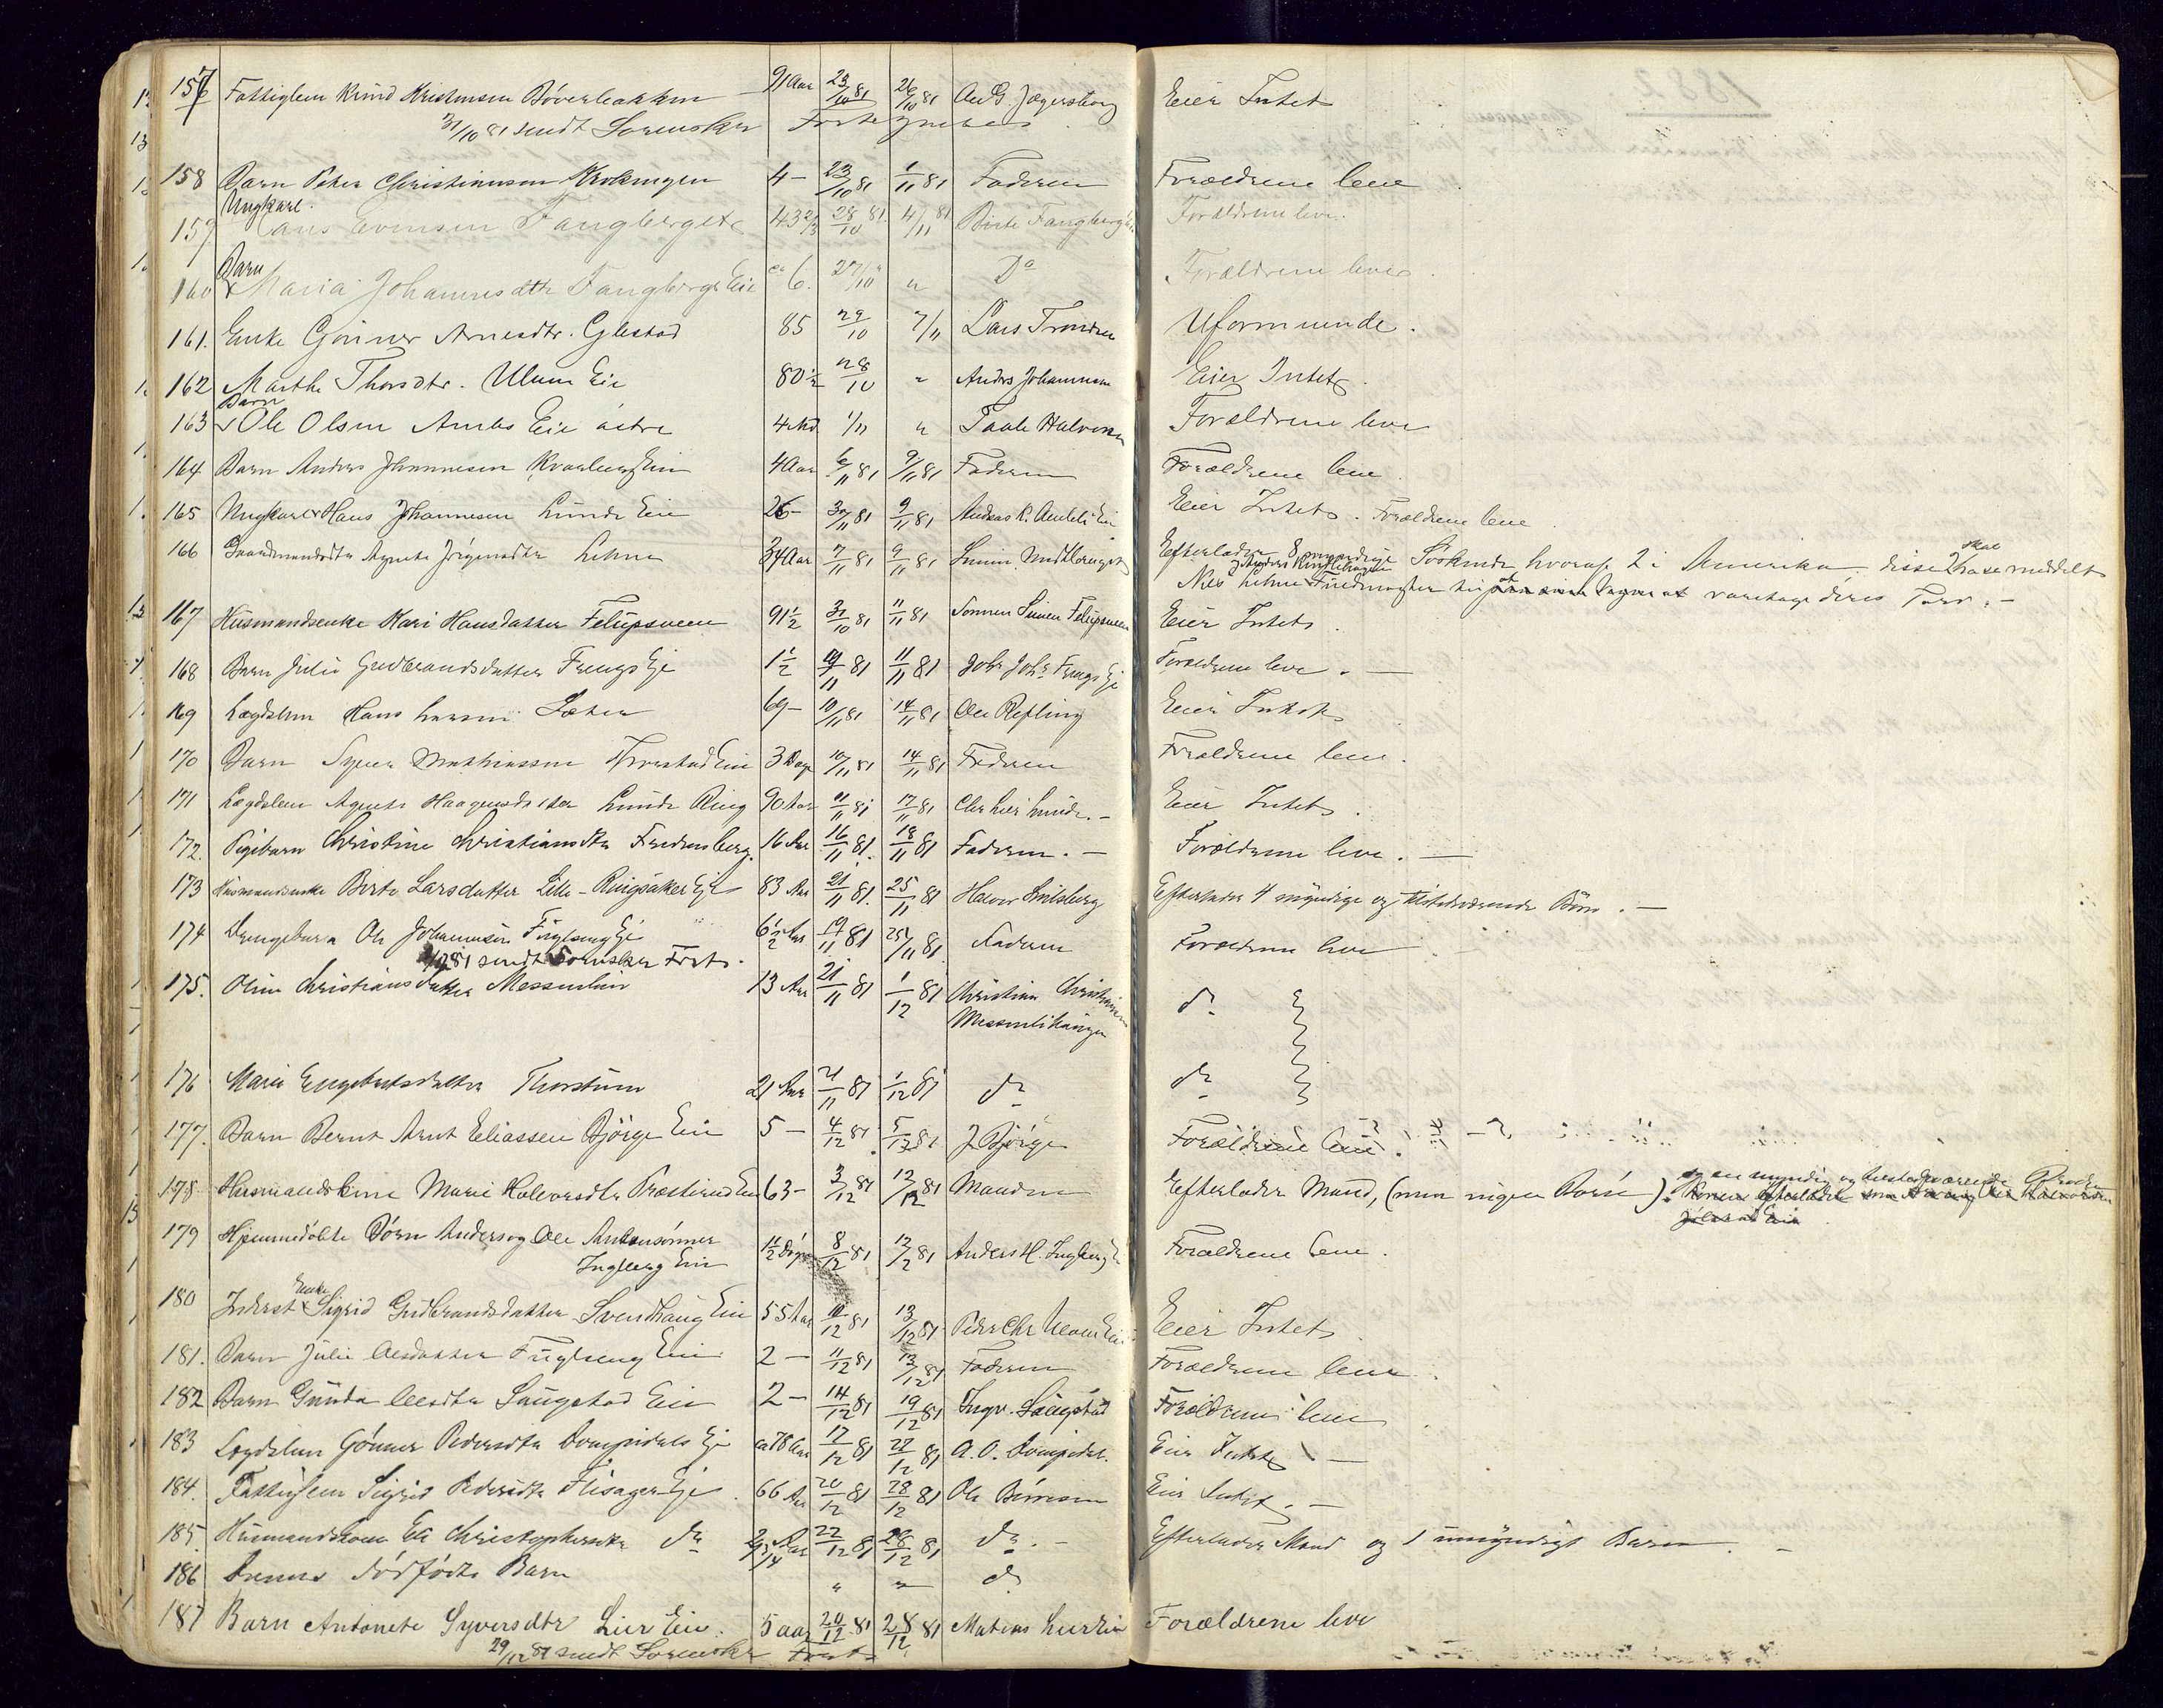 157 Fattiglem Knud Kristensen Böverbakken 91 Aar 23/10 81 26/10 81 Ole G. Jægersborg Eier Intet
31/10 81 sendt Sorensker Fortegnelse
158 Barn Peter Christiansen Krokengen 4 — 23/10 81 1/11 81 Faderen Forældrene leve
Ungkarl.
159 Hans Evensen Fangberget 43 2/3 28/10 81. 4/11 81 Birte Fangberget Forældrene leve.
Barn
160 Maria Johannesdtr Fangbergs Eie ca 6. 27/10 " Do Forældrene leve.
161. Enke Gönner Arnesdtr. Gjlestad 85 29/10 7/11 Lars Trondsen Uformuende.
162 Marthe Thorsdtr. Ulum Eie 80 1/2 28/10 " Anders Johannesen Eier Intet.
Barn
163 Ole Olsen Eie östre 4 Md 1/11 " Halvorsen Forældrene leve
164 Barn Anders Johannesen Kvarberg Eie 4 Aar 6/11 81 9/11 81 Faderen Forældrene leve.
165 Ungkarl Hans Johannesen Lunde Eie 26 — 30/11 81 9/11 81 Andreas K. Eie Eier Intet. Forældrene leve.
166 Gaardmandsdtr Agnete Jörgensdtr Lehne 34 Aar 7/11 81 9/11 81 Efterlader 8 myndige Söskende hvoraf 2 i Amerika, disse 2 skal have meddelt
Nils Lehne at varetage deres Tarv. —
167 Husmandsenke Kari Hansdatter Felupsveen 91 1/2 31/10 81 11/11 81 Sønnen Simen Felupsveen Eier Intet.
168 Barn Julie Gudbrandsdatter Frengs Eje 1 1/2 10/11 81 11/11 81 Johs Johs Frengs Eje Forældrene leve. —
169 Lægdslem Hans Larsen Sæter 69 — 10/11 81 14/11 81 Ole Refling Eier Intet.
170 Barn Syver Mathiassen Eie 3 Dage 10/11 81 14/11 81 Faderen Forældrene leve.
171 Lægdslem Agnete Haagensdatter Lunde Ring 90 Aar 11/11 81 17/11 81 Chr Lier Lunde. — Eier Intet.
172. Pigebarn Christine Christiansdtr Fredensberg. 16 Aar 16/11 81. 18/11 81 Faderen. — Forældrene leve. —
173 Husmandsenke Berte Larsdatter Lille-Ringsaker Eje 83 Aar 21/11 81. 25/11 81 Halvor Smidsberg Efterlader 4 myndige og tilstedeværende Börn. —
174 Drengebarn Ole Johannesen Fuglseng Eje 6 1/2 Aar 19/11 81 25/11 81 Faderen Forældrene leve
1/12 81 sendt Sorensker Fort.
175. Oline Christiansdatter Messenlien 13 Aar 21/11 81 1/12 81 Christian Christiansen do
Messenlihaugen
176 Marie Engebretsdatter Thorstuen 21 Aar 21/11 81 1/12 81 do do
177. Barn Bernt Arnt Eliassen Björge Eie 5 — 4/12 81. 5/12 81 J Björge Forældrene leve.
178 Husmandskone Marie Halvorsdtr Præsterud Eie 63 — 3/12 81 12/12 81 Manden Efterlader Mand, (men ingen Börn). og en myndig og tilstedeværende Broder
179 Hjemmedöbte Börn Anders og Ole Antonsönner 1 1/2 Dage 8/12 81 12/12 81 Anders H. Ingberg Forældrene leve.
Ingberg Eie
Enke
180 Inderst Sigrid Gudbrandsdatter Svendhaug Eie 55 Aar 10/12 81 13/12 81 Peder Chr Eie Eier Intet
181. Barn Julie Olesdatter Fuglseng Eie 2 — 11/12 81 13/12 81 Faderen Forældrene leve.
182 Barn Gunda Olesdtr Saugstad Eie 2 — 14/12 81 19/12 81 Ingv. Saugstad Forældrene leve
183 Lægdslem Gönner Pedersdtr Dompidals Eje ca 78 Aar 17/12 81 22/12 81 A. O. Dompidal. Eier Intet —
184. Fattiglem Sigrid Pedersdtr Flisager Eje 66 Aar 20/12 81 28/12 81 Ole Börresen Eier Intet. —
185. Husmandskone Eli Christophersdtr do Aar 22/12 81 28/12 81 do. — Efterlader Mand og 1 umyndigt Barn. —
186 Dennes dödfödte Barn " " do
187 Barn Antonete Syversdtr Lier Eie. 5 aar 20/12 81 28/12 81 Matias Lier Eie Forældrene leve
29/12 81 sendt Sorensker Fort.